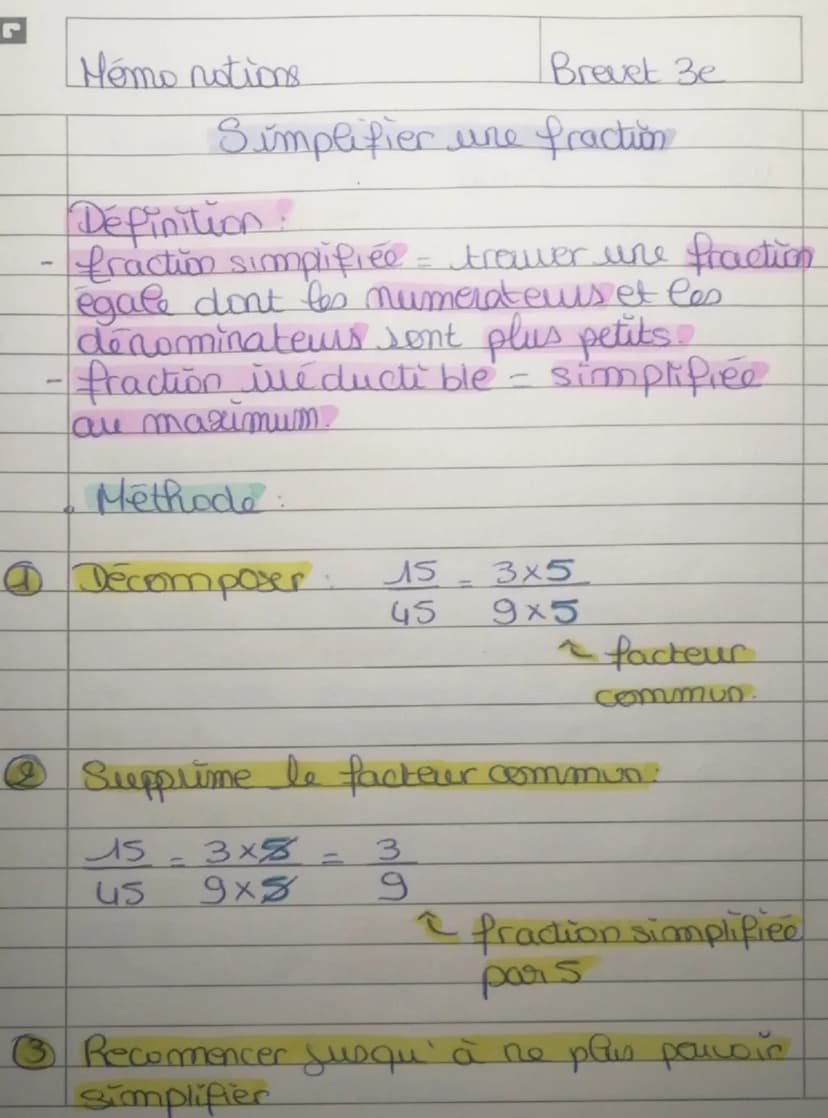 Mémo notions
Brevet 3e
Simplifier une fraction
Définition :
- fraction simplifiée = trouver une fraction
égale dont les numérateurs et les
dénominateurs sont plus petits.
- fraction irréductible = simplifiée
au maximum.
. Méthode :
① Décomposer : 15/45 = 3×5/9×5
↖ facteur
commun.
② Supprime le facteur commun :
15/45 = 3×5/9×5 = 3/9
↖ fraction simplifiée
par 5
③ Recomencer jusqu'à ne plus pouvoir
simplifier